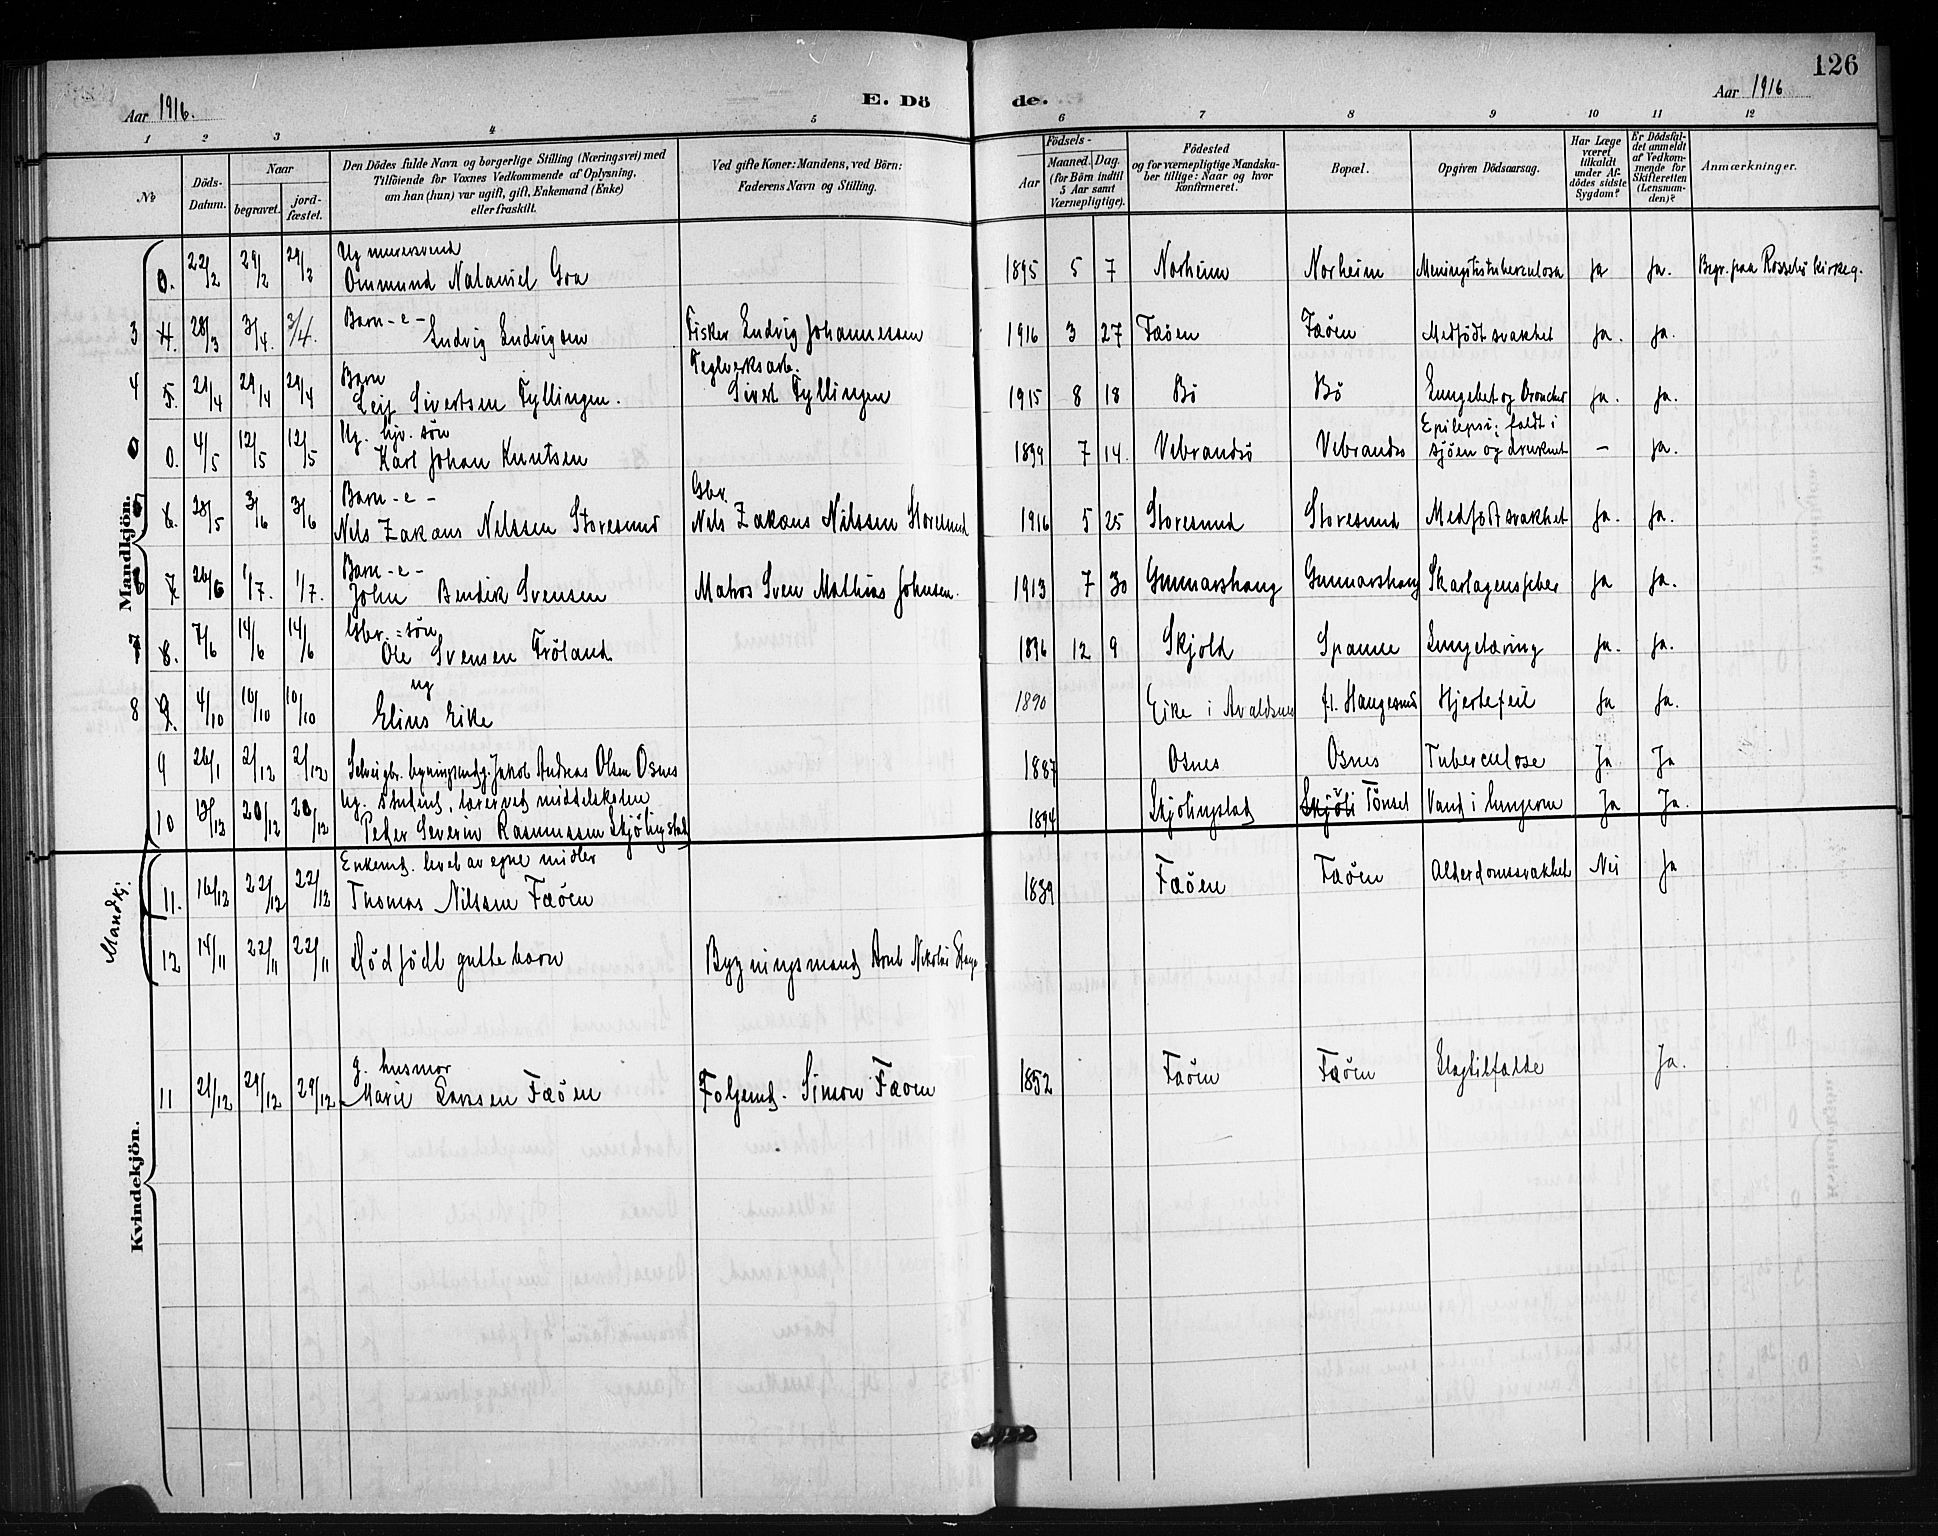 126
Aar 1916.
E. Dö de.
Aar 1916
1 2 3 4 5 6 7 8 9 10 11 12
No
Döds-Datum.
Naar
begravet.
jord-fæstet.
Den Dödes fulde Navn og borgerlige Stilling (Næringsvei) med
Tilföiende for Voxnes Vedkommende af Oplysning,
om han (hun) var ugift, gift, Enkemand (Enke)
eller fraskilt.
Ved gifte Koner: Mandens, ved Börn:
Faderens Navn og Stilling.
Födsels-
Aar
Maaned. Dag.
(for Börn indtil
5 Aar samt
Værnepligtige).
Födested
og for værnepligtige Mandska-
ber tillige: Naar og hvor
konfirmeret.
Bopæl.
Opgiven Dödsaarsag.
Har Læge
været
tilkaldt
under Af-
dödes sidste
Sygdom?
Er Dödsfal-
det anmeldt
af Vedkom-
mende for
Skifteretten
(Lensman-
den)?
Anmærkninger.
Mandkjön.
Ug murersvend
0. 22/2 29/2 29/3 Ommund Nataniel Goa 1895 5 7 Norheim Norheim Meningitistuberculosa Ja Ja. Begr. paa Rossebö kirkeg.
Barn -e-
3 4. 28/3 3/4. 3/4. Ludvig Ludvigsen Fisker Ludvig Johannessen 1916 3 27 Fæöen Fæöen Medfödt svakhet Ja. Ja.
Barn Teglverksarb.
4 5. 21/4 29/4 29/4 Leif Sivertsen Fyllingen. Sivert Fyllingen 1915 8 18 Bö Bö Lungebet og Bronchit Ja. Ja.
Ug. gbr. sön Epilepsi; faldt i
0 0. 4/5 12/5 12/5 Karl Johan Knutsen 1899 7 14. Vebrandsö Vebrandsö sjöen og druknet — Ja.
Barn -e- Gbr.
6. 28/5 3/6 3/6 Nels Zakæus Nilssen Storesund Nels Zakæus Nilssen Storesund 1916 5 25 Storesund Storesund Medfödt svakhet Ja. Ja.
Barn -e-
6 7 26/6 1/7. 1/7. John Bendik Svensen Matros Sven Mathias Johnsen. 1913 7 30 Gunnarshaug Gunnarshaug Skarlagensfeber Ja Ja.
Gbr. = sön
7 8. 7/6 14/6 14/6 Ole Svensen Fröland 1896 12 9 Skjold Spanne Lungetæring Ja. Ja.
ug
8 9. 4/10 10/10 10/10 Elius Eike 1890 Eike i Avaldsnes f.t. Haugesund Hjertefeil Ja Ja.
9 26/1 2/12 2/12 Selveigbr. bygningsmdg. Jakob Andreas Olsen Osnes 1887 Osnes Osnes Tuberculose Ja Ja
ug. student, lærer ved middelskolen
10 13/12 20/12 20/12 Peder Severin Rasmussen Skjölingstad 1894 Skjölingstad Tönsel Vand i lungerne Ja Ja.
Mandkj.
Enkemd. levet av egne midler
11. 16/12 22/12 22/12 Thomas Nilsen Fæöen 1839 Fæöen Fæöen Alderdomssvakhet Nei Ja
12 14/11 22/11 22/11 Dödfödt guttebarn Bygningsmand Arnt Nikolai
Kvindekjön.
g. husmor
11 21/12 29/12 29/12 Marie Larsen Fæöen Folgemd. Simon Fæöen 1852 Fæöen Fæöen Slagtilfælde Ja.